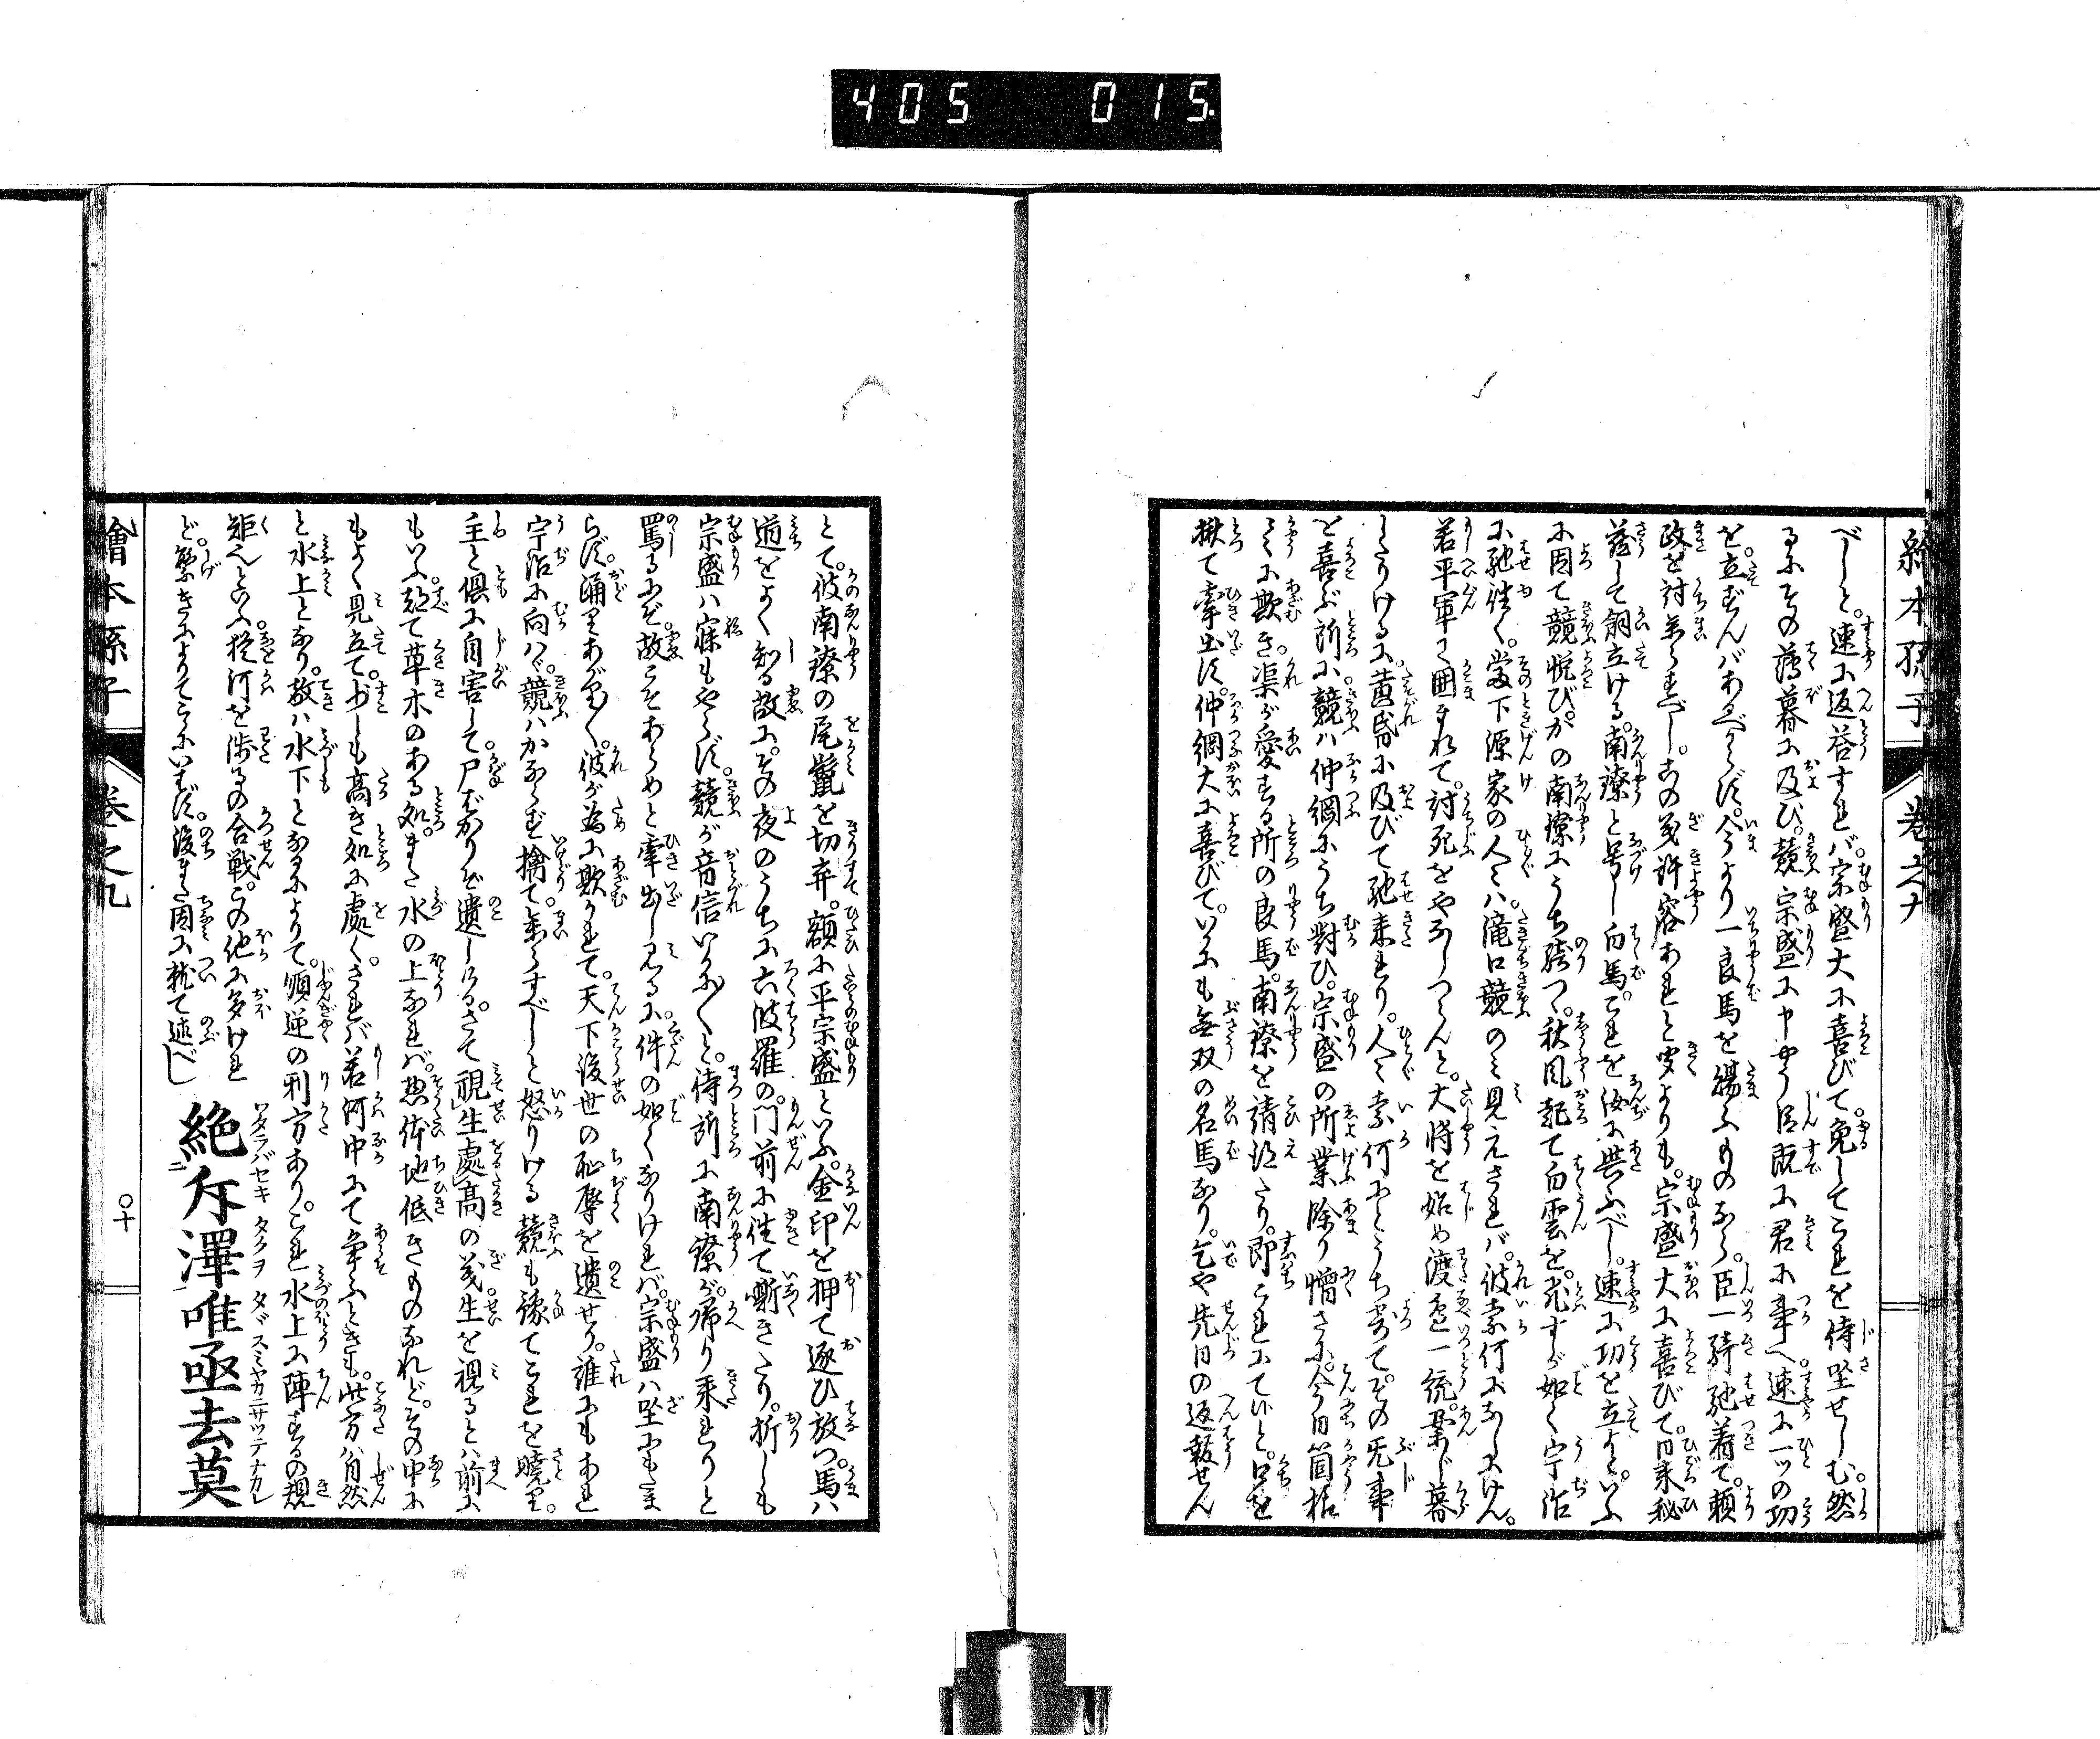 405 015.
繪本孫子 卷之九
べしと。速に返答すれバ。宗盛大に喜びて。免してこれを侍坐せしむ。然
るにその薄暮に及び。競宗盛に申やう臣既に君に事へ。速に一ツの功
を。立ずんバあるべからず。今より一良馬を賜ふものなら。臣一騎馳着て。頼
政を討参らすべし。この義許容あれと聞よりも。宗盛大に喜びて。日来秘
蔵して飼立ける。南鐐と号し白馬。これを汝に与ふべし。速に功を立よと。いふ
に因て競悦び。かの南鐐にうち跨つ。秋風起て白雲を。飛すが如く宇治
に馳往く。爰下源家の人々ハ。滝口競のミ見えされバ。彼索何になしにけん。
若平軍に囲まれて。討死をやなしつらんと。大将を始め渡邉一統。案じ暮
したりけるに。黄昏に及びて馳来れり。人々索何にとうち寄て。その无事
を喜ぶ所に。競ハ仲綱にうち對ひ。宗盛の所業除り憎さに。今日箇様
々々に欺き。渠が愛する所の良馬。南鐐を請得たり。即これにて候と。口を
揪て牽出す。仲綱大に喜びて。いかにも無双の名馬なり。乞や先日の返報せん
とて。彼南鐐の尾鬣を切弃。額に平宗盛といふ。金印を押て逐ひ放つ。馬ハ
道をよく知る故に。その夜のうちに六波羅の。門前に往て嘶きたり。折しも
宗盛ハ寐もやらず。競が音信いかに〳〵と。待所に南鐐が。帰り来れりと
罵るにぞ。故こそあらめと牽出し見るに。件の如くなりけれバ。宗盛ハ坐にもたま
らず。踊りあがり〳〵。彼が為に欺かれて。天下後世の恥辱を遺せり。誰にもあれ
宇治に向ハゞ。競ハかならず擒て。参らすべしと怒りける競も豫てこれを暁り。
主と倶に自害して。尸ばかりぞ遺しける。さて視生處高の義生を視ると
ハ前に
もいふ。都て草木のある処。また水の上なれバ。惣体地低きものなれど。その中に
もよく見立て。少しも高き処に處く。されバ若河中にて争ふときも。此方ハ自然
と水上となり。敵ハ水下となるによりて。順逆の利方あり。これ水上に陣するの規
矩へといふ。從河を渉るの合戦。この他に多けれ
ど。繁きによりてこゝにいはず。後また因に就て述べし
絶斥澤唯亟去莫
ワタラバセキタクヲ タゞスミヤカニサツテナカレ
繪本孫子 卷之九
〇十